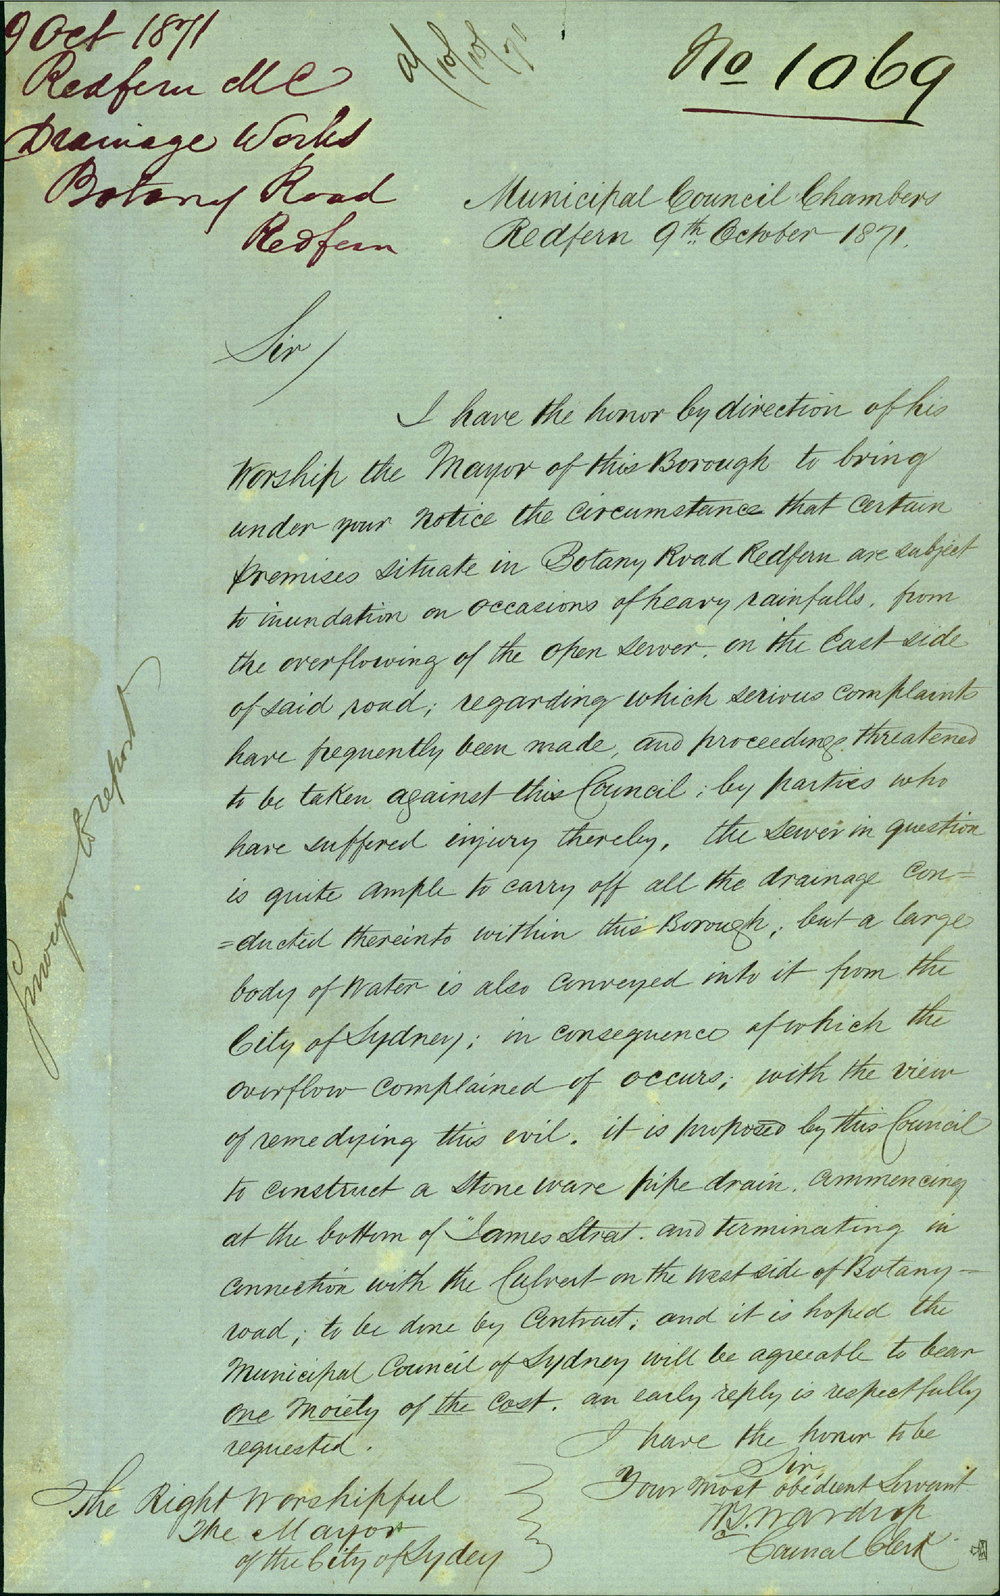 9 Oct 1871
Redfern M C
Drainage Works
Botany Road
Redfern
No 1069
Municipal Council Chambers
Redfern 9th October 1871.
Sir
I have the honor by direction of his
Worship the Mayor of this Borough to bring
under your notice the circumstance that certain
premises situate in Botany Road Redfern are subject
to inundation on occasions of heavy rainfalls, from
the overflowing of the open sewer, on the East side
of said road; regarding which serious complaints
have frequently been made, and proceedings threatened
to be taken against this Council; by parties who
have suffered injury thereby, the sewer in question
is quite ample to carry off all the drainage con=
=ducted thereinto within this Borough; but a large
body of Water is also conveyed into it from the
City of Sydney; in consequence of which the
overflow complained of occurs; with the view
of remedying this evil, it is proposed by this Council
to construct a stone ware pipe drain, commencing
at the bottom of "James Street, and terminating in
connection with the Culvert on the west side of Botany-
road; to be done by Contract; and it is hoped the
Municipal Council of Sydney will be agreeable to bear
one Moiety of the cost. an early reply is respectfully
requested.
I have the honor to be
Sir,
Your most obedient Servant
W. J. Wardrop
Council Clerk
The Right Worshipful
The Mayor
of the City of Sydey
Surveyor to report